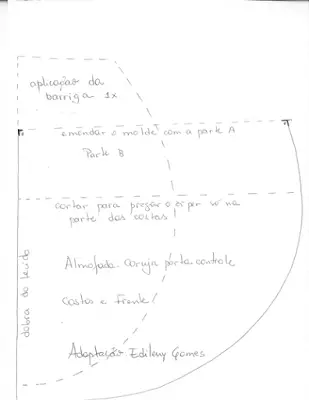 aplicação da
barriga 1x
emendar o molde com a parte A
Parte B
cortar para pregar o ziper só na
parte das costas
Almofada Coruja porta controle
Costas e Frente
Adaptação Edileny Gomes
dobra do tecido